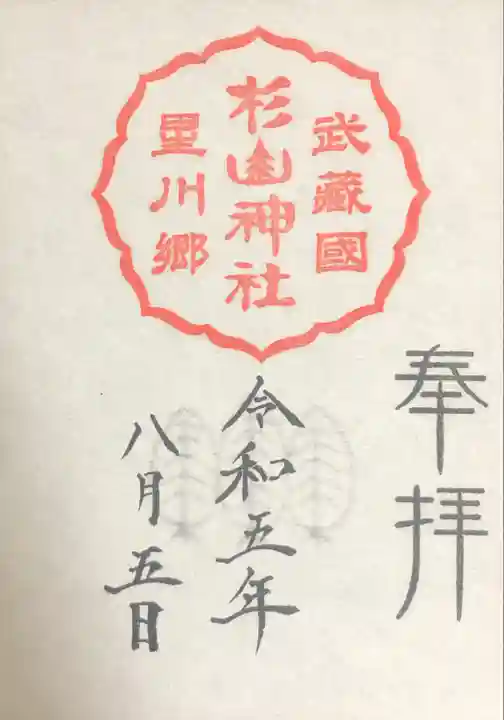 奉拝
武藏國
杉山神社
星川郷
令和五年
八月五日